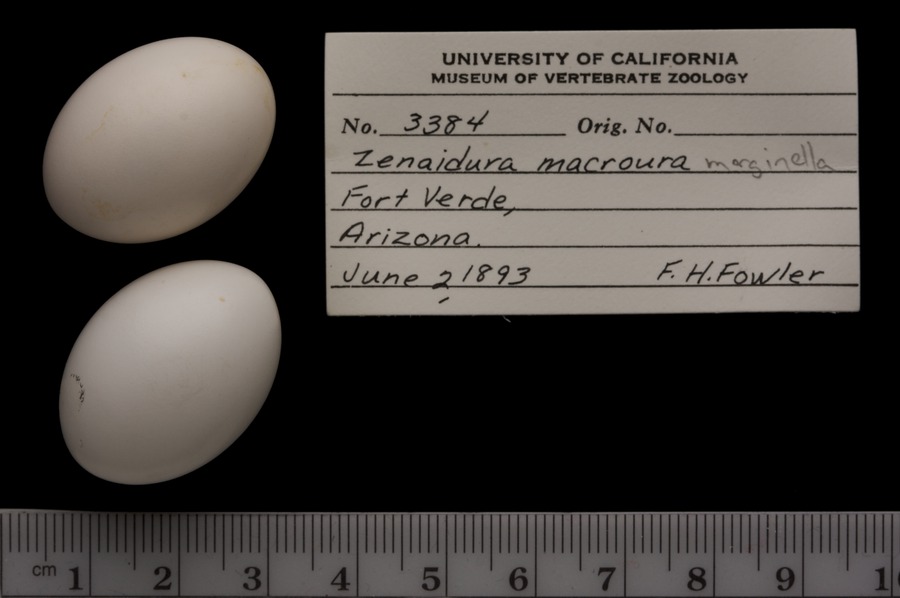 UNIVERSITY OF CALIFORNIA
MUSEUM OF VERTEBRATE ZOOLOGY
No. 3384 Orig. No.
Zenaidura macroura marginella
Fort Verde,
Arizona.
June 2, 1893 F. H. Fowler
cm 1 2 3 4 5 6 7 8 9 1